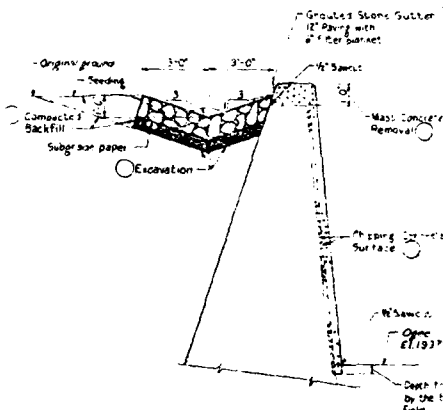 Grouted Stone Gutter
12" Paving with
filter blanket
3'-0" 3'-0"
Original ground
Seeding
½" Sawcut
3 3
Compacted
Backfill
Mass Concrete
Removal
Subgrade paper
Excavation
Chipping Concrete
Surface
Sawcut
El. 1937
Depth
by the